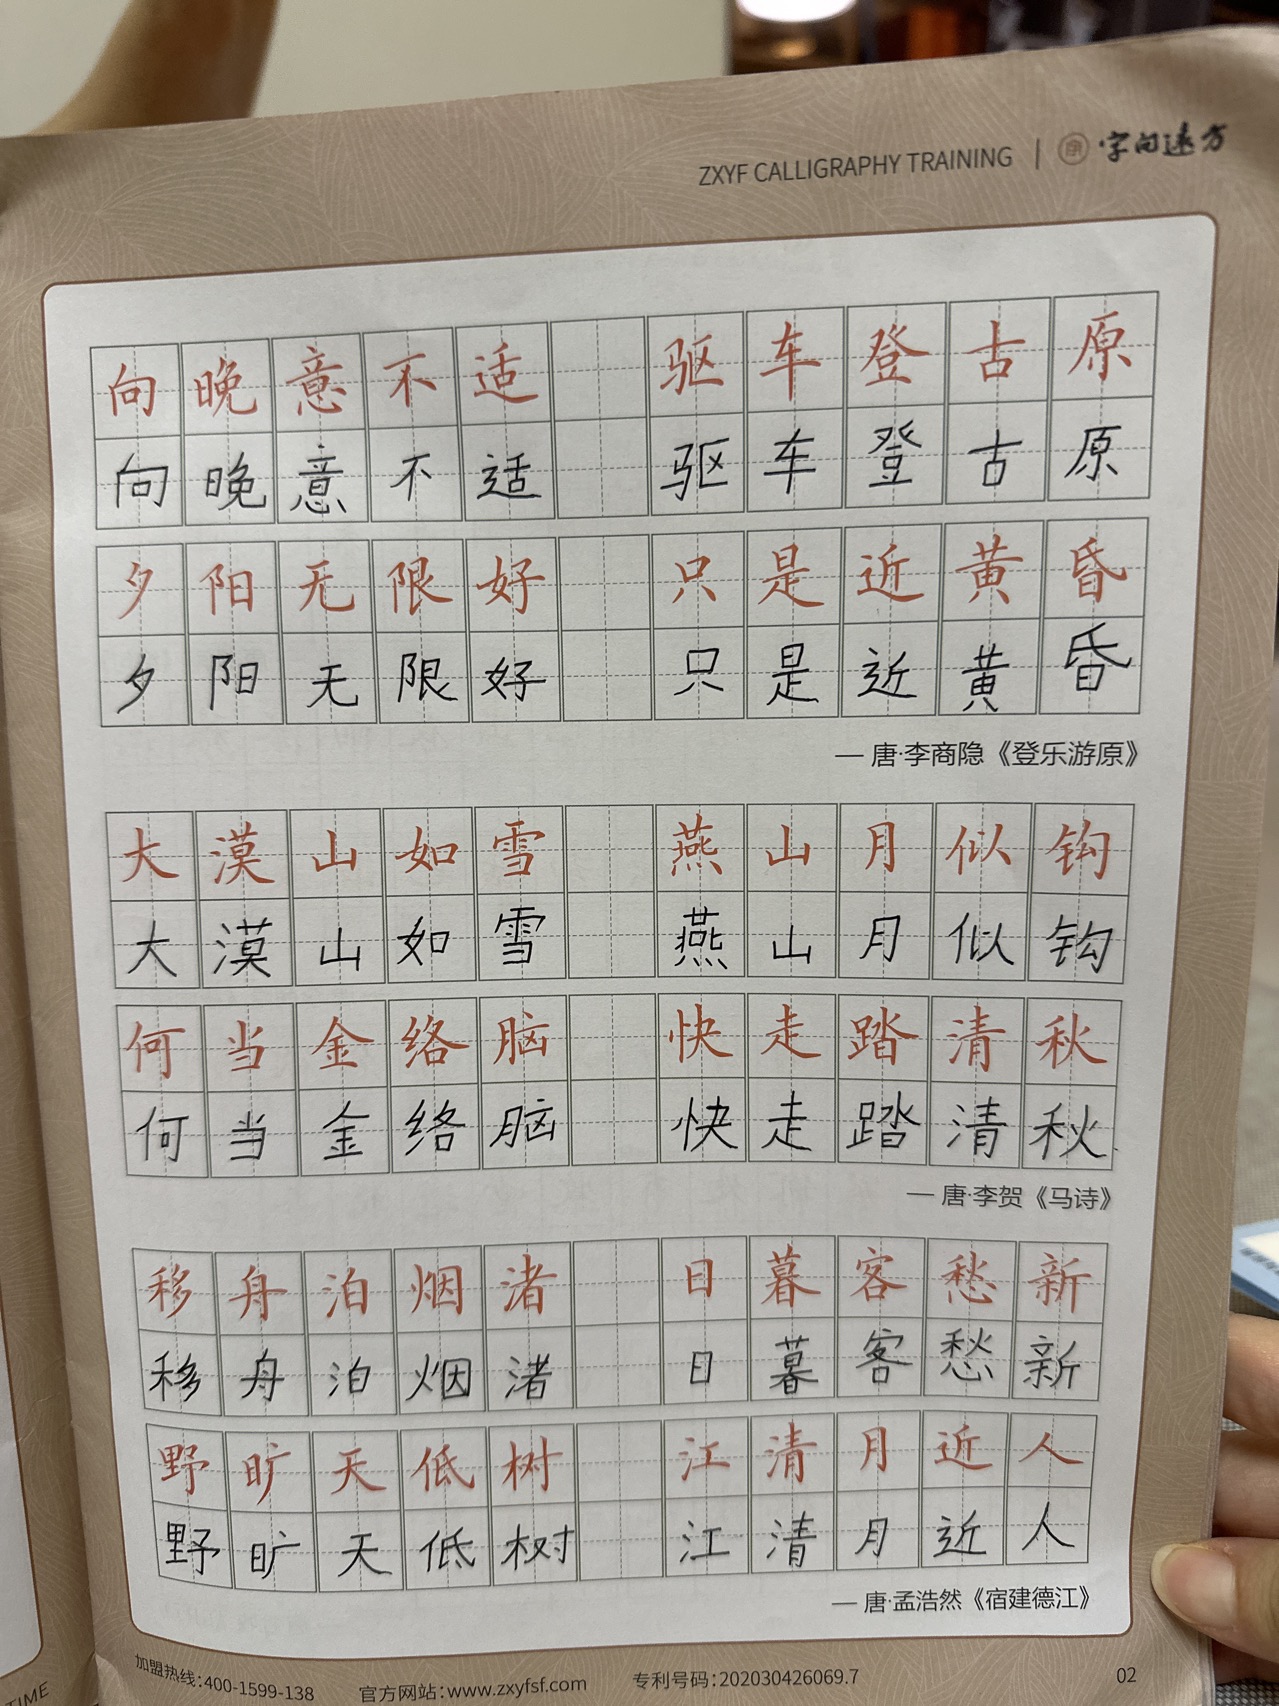 ZXYF CALLIGRAPHY TRAINING | 字向远方
向晚意不适 驱车登古原
向晚意不适 驱车登古原
夕阳无限好 只是近黄昏
夕阳无限好 只是近黄昏
— 唐·李商隐《登乐游原》
大漠山如雪 燕山月似钩
大漠山如雪 燕山月似钩
何当金络脑 快走踏清秋
何当金络脑 快走踏清秋
— 唐·李贺《马诗》
移舟泊烟渚 日暮客愁新
移舟泊烟渚 日暮客愁新
野旷天低树 江清月近人
野旷天低树 江清月近人
— 唐·孟浩然《宿建德江》
加盟热线:400-1599-138 官方网站:www.zxyfsf.com 专利号码:202030426069.7 02
TIME